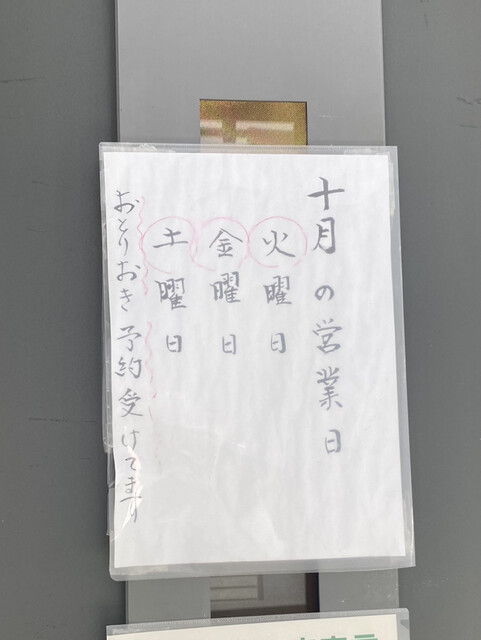 十月の営業日
火曜日
金曜日
土曜日
おとりおき予約受けてます